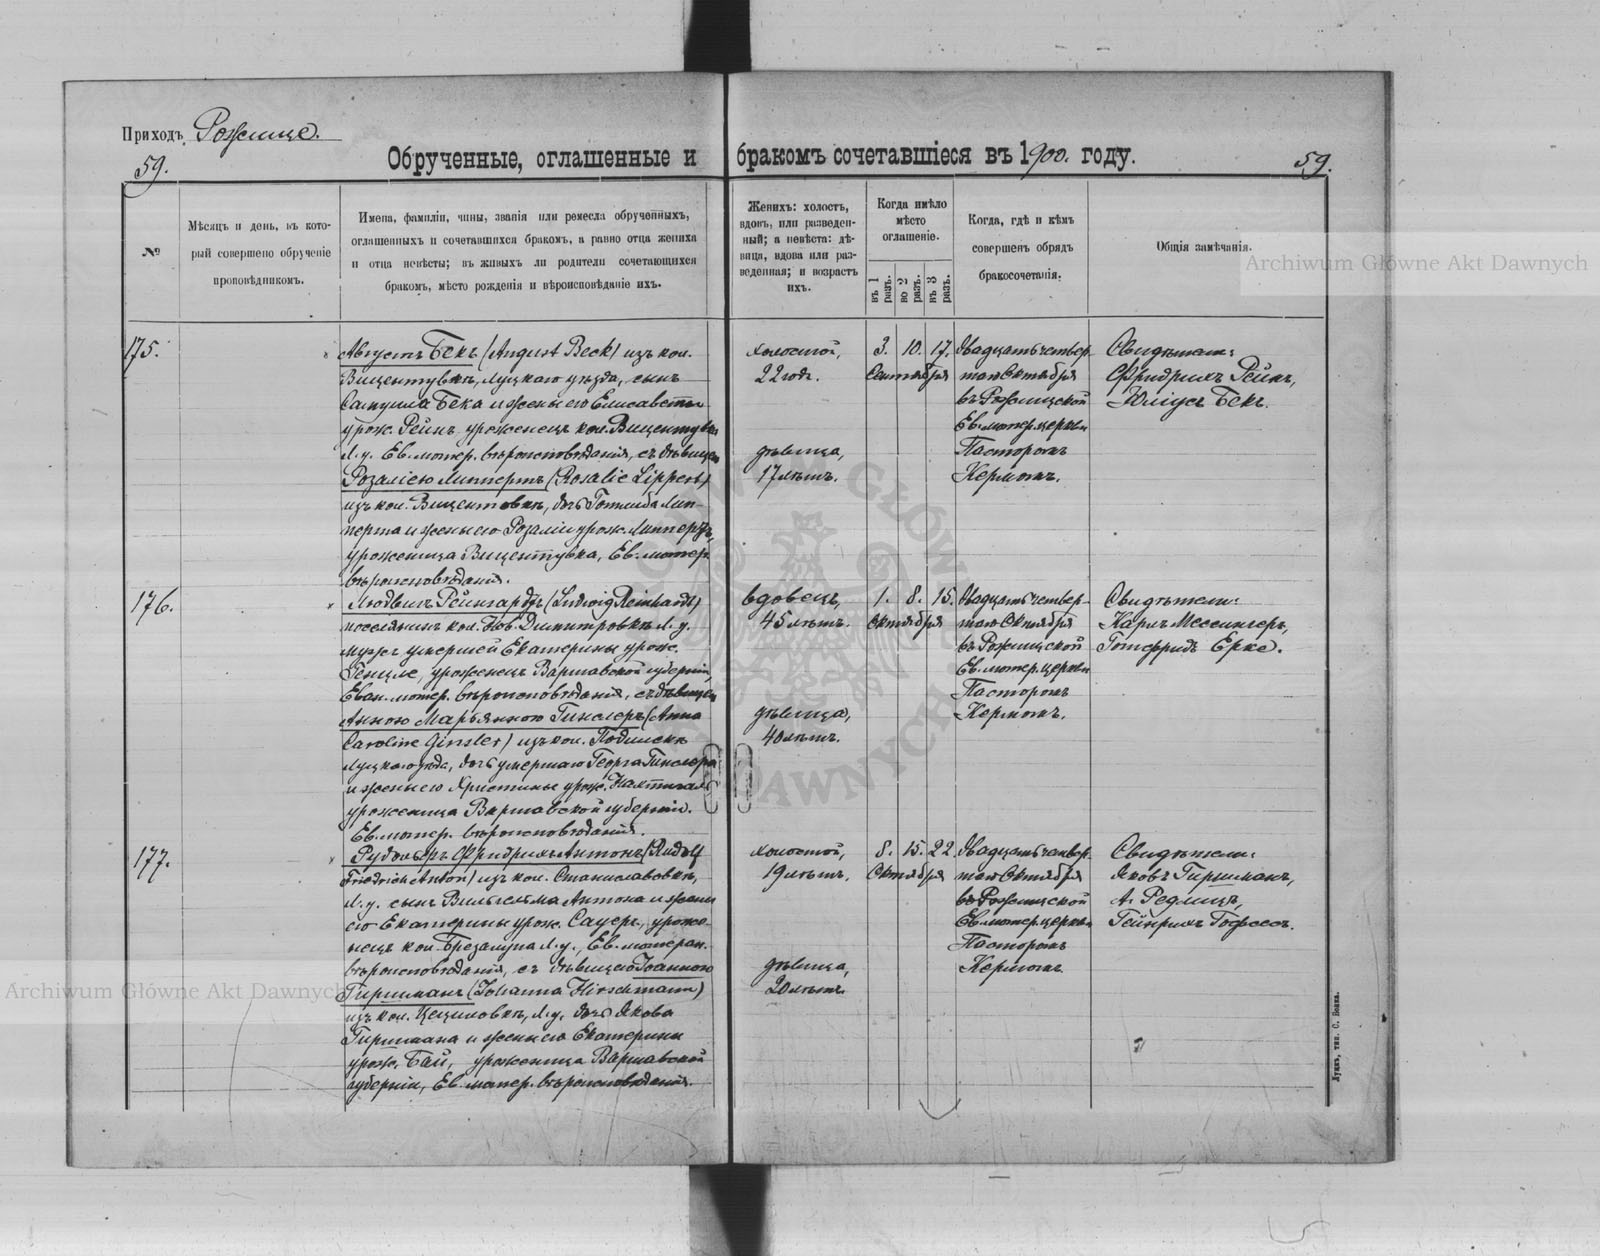 Приходъ Рожище.
59.
Обрученные, оглашенные и бракомъ сочетавшіеся въ 1900. году.
59.
№
Мѣсяцъ и день, въ кото-
рый совершено обрученіе
проповѣдникомъ.
Имена, фамиліи, чины, званія или ремесла обрученныхъ,
оглашенныхъ и сочетавшихся бракомъ, а равно отца жениха
и отца невѣсты; въ живыхъ ли родители сочетающихся
бракомъ, мѣсто рожденія и вѣроисповѣданіе ихъ.
Женихъ: холостъ,
вдовъ, или разведен-
ный; а невѣста: дѣ-
вица, вдова или раз-
веденная; и возрастъ
ихъ.
Когда имѣло
мѣсто
оглашеніе.
въ 1 разъ.
во 2 разъ.
въ 3 разъ.
Когда, гдѣ и кѣмъ
совершенъ обрядъ
бракосочетанія.
Общія замѣчанія.
175.
Августъ Бекъ (August Beck) изъ кол.
Вицентувкѣ, Луцкаго уѣзда, сынъ
Самуила Бека и жены его Елисаветы
урож. Рейнъ уроженецъ кол. Вицентувка
Л. у. Ев. лютер. вѣроисповѣданія, съ дѣвицею
Розаліею Липпертъ (Rosalie Lippert)
изъ кол. Вицентовкѣ, дочь Готлиба Лип-
перта и жены его Розаліи урож. Липпертъ,
уроженица Вицентувка, Ев. лютер.
вѣроисповѣданія.
холостой,
22 годъ.
дѣвица,
17 лѣтъ.
3. 10. 17.
Сентября
Двадцать четвер-
таго Октября
въ Рожищской
Ев. лютер. церкви
Пасторомъ
Кермомъ.
Свидѣтели:
Фридрихъ Рейнъ,
Юліусъ Бекъ.
176.
Людвикъ Рейнгардтъ (Ludwig Reinhardt)
поселянинъ кол. Нов. Дмитровкѣ Л. у.
мужъ умершей Екатерины урож.
Генцле, уроженецъ Варшавской губерніи,
Еван. лютер. вѣроисповѣданія, съ дѣвицею
Анною Марьянною Гинслеръ (Anna
Caroline Ginsler) изъ кол.
Луцкаго уѣзда, дочь умершаго Георга Гинслера
и жены его Христины урож.
уроженица Варшавской губерніи.
Ев. лютер. вѣроисповѣданія.
вдовецъ,
45 лѣтъ.
дѣвица,
40 лѣтъ.
1. 8. 15.
Октября
Двадцать четвер-
таго Октября
въ Рожищской
Ев. лютер. церкви
Пасторомъ
Кермомъ.
Свидѣтели:
Карлъ Мессингеръ,
Готфридъ Ерке.
177.
Рудольфъ Фридрихъ Антонъ (Rudolf
Friedrich Anton) изъ кол. Станиславовкѣ,
Л. у. сынъ Вильгельма Антона и жены
его Екатерины урож. Сауеръ, уроже-
нецъ кол. Брезалупа Л. у., Ев. лютеран.
вѣроисповѣданія, съ дѣвицею Іоанною
Гиршманъ (Johanna Hirschmann)
изъ кол. Цециловкѣ, Л. у. дочь Якова
Гиршмана и жены его Екатерины
урож. Бай, уроженица Варшавской
губерніи, Ев. лютер. вѣроисповѣданія.
холостой,
19 лѣтъ.
дѣвица,
20 лѣтъ.
8. 15. 22.
Октября
Двадцать четвер-
таго Октября
въ Рожищской
Ев. лютер. церкви
Пасторомъ
Кермомъ
Свидѣтели:
Яковъ Гиршманъ,
А. Редлихъ,
Гейнрихъ
Луцкъ, тип. С. Бокка.
Archiwum Główne Akt Dawnych
Archiwum Główne Akt Dawnych